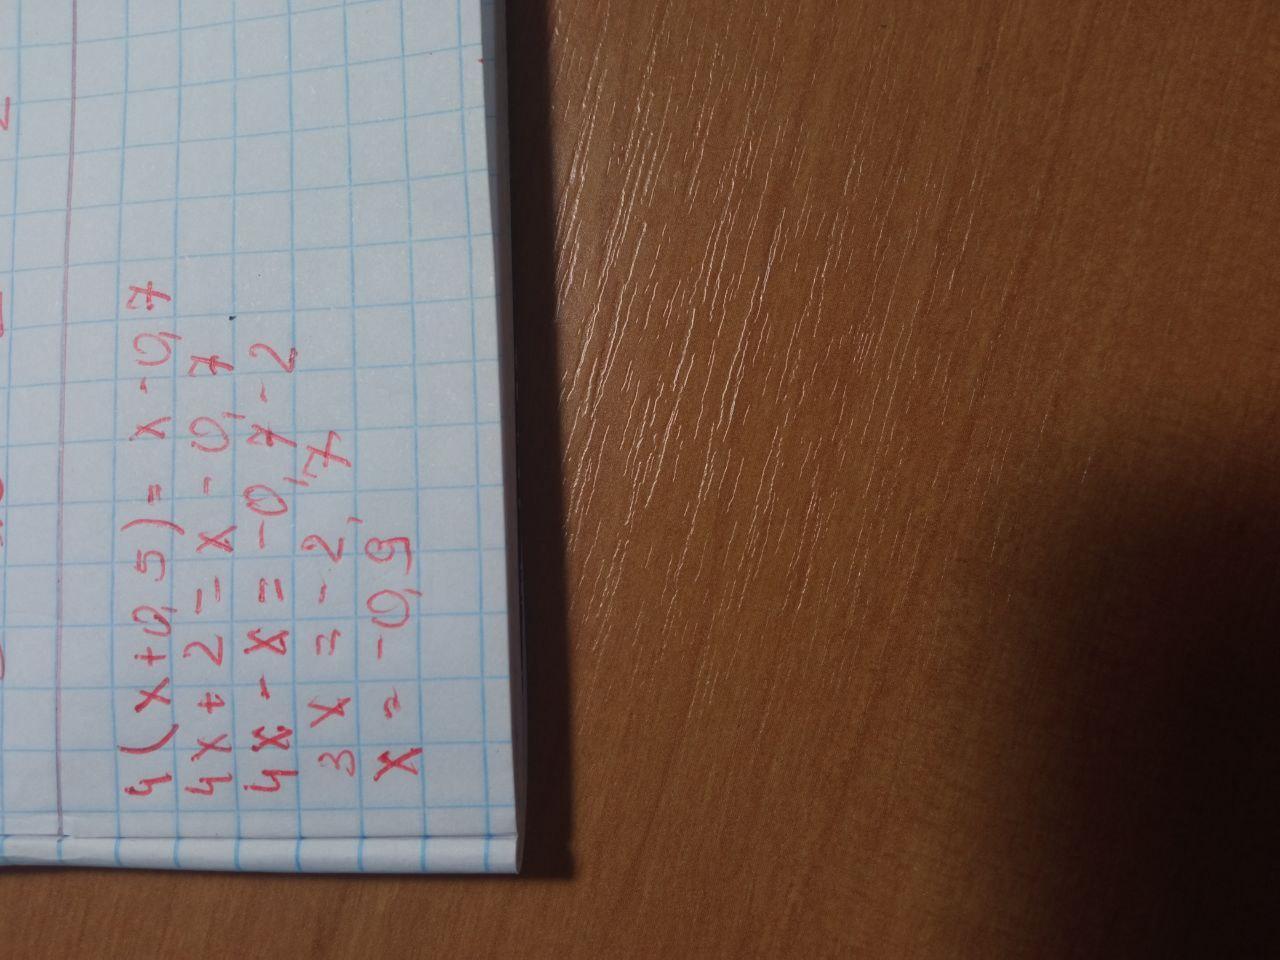 4(x+0,5)= x-0,7
4x+2=x-0,7
4x-x=-0,7-2
3x=-2,7
x=-0,9